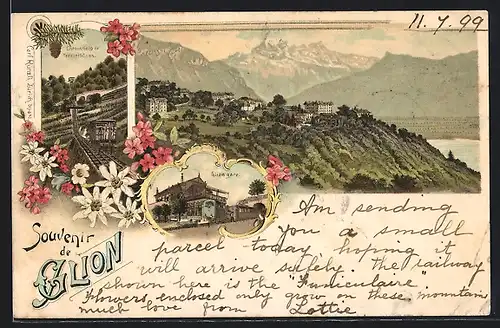 11.7.99
Glion gare
Souvenir
de
GLION
Am sending
you a small
parcel today hoping it
will arrive safely. the railway
shown here is the "Funiculaire"
Flowers enclosed only grow on these mountain
much love from Lottie